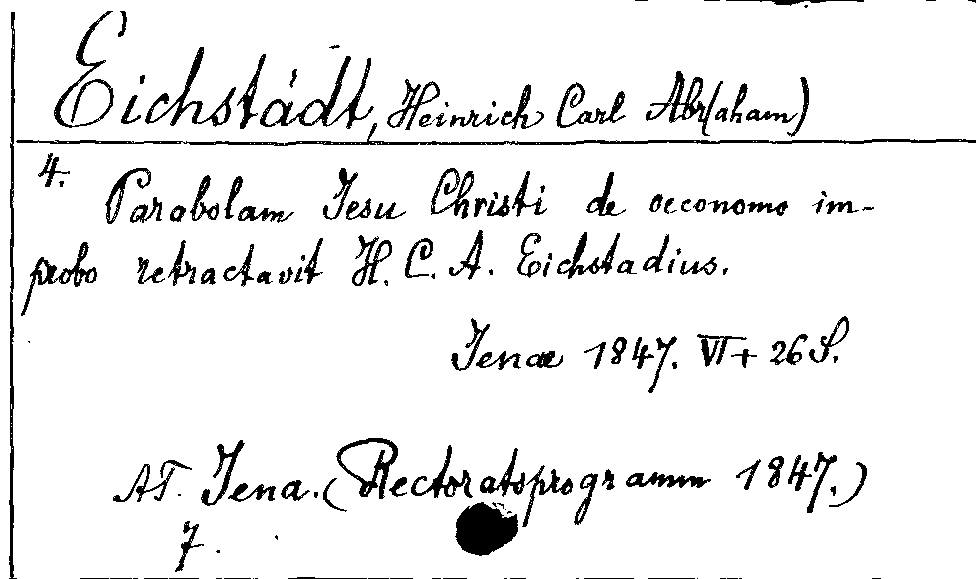 Eichstädt, Heinrich Carl Abr(aham)
4.
Parabolam Jesu Christi de oeconomo im-
probo retractavit H. C. A. Eichstadius.
Jenae 1847. VI + 26 S.
AT. Jena. (Rectoratsprogramm 1847.)
7.